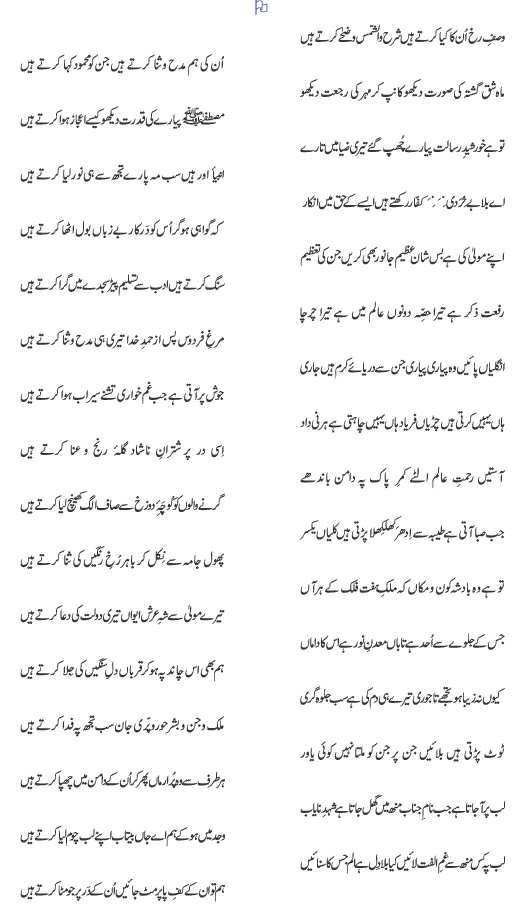 وصفِ رخ اُن کا کیا کرتے ہیں شرح والشمس وضحٰے کرتے ہیں
اُن کی ہم مدح وثنا کرتے ہیں جن کو محمود کہا کرتے ہیں
ماہ شق گشتہ کی صورت دیکھو کانپ کر مہر کی رجعت دیکھو
مصطفےٰ ﷺ پیارے کی قدرت دیکھو کیسے اعجاز ہوا کرتے ہیں
تو ہے خورشیدِ رسالت پیارے چُھپ گئے تیری ضیا میں تارے
انبیا اور ہیں سب مہ پارے تجھ سے ہی نور لیا کرتے ہیں
اے بلا بے خِرَدیِ کفّار رکھتے ہیں ایسے کے حق میں انکار
کہ گواہی ہو گر اُس کو دَرکار بے زباں بول اٹھا کرتے ہیں
اپنے مولیٰ کی ہے بس شان عظیم جانور بھی کریں جن کی تعظیم
سنگ کرتے ہیں ادب سے تسلیم پیڑ سجدے میں گرا کرتے ہیں
رفعت ذکر ہے تیرا حصّہ دونوں عالم میں ہے تیرا چرچا
مرغِ فردوس پس از حمدِ خدا تیری ہی مدح وثنا کرتے ہیں
انگلیاں پائیں وہ پیاری پیاری جن سے دریائے کرم ہیں جاری
جوش پر آتی ہے جب غم خواری تشنے سیراب ہوا کرتے ہیں
ہاں یہیں کرتی ہیں چڑیاں فریاد ہاں یہیں چاہتی ہے ہرنی داد
اِسی در پر شترانِ ناشاد گلۂ رنج وعنا کرتے ہیں
آستیں رحمتِ عالم الٹے کمرِ پاک پہ دامن باندھے
گرنے والوں کو چَہِ دوزخ سے صاف الگ کھینچ لیا کرتے ہیں
جب صبا آتی ہے طیبہ سے اِدھر کھلکھلا پڑتی ہیں کلیاں یکسر
پھول جامہ سے نکل کر باہر رُخِ رنگیں کی ثنا کرتے ہیں
تو ہے وہ بادشہِ کون ومکاں کہ ملک ہفت فلک کے ہر آں
تیرے مولیٰ سے شہِ عرش ایواں تیری دولت کی دعا کرتے ہیں
جس کے جلوے سے اُحد ہے تاباں معدنِ نور ہے اس کا داماں
ہم بھی اس چاند پہ ہو کر قرباں دلِ سنگیں کی جلا کرتے ہیں
کیوں نہ زیبا ہو تجھے تاجوری تیرے ہی دم کی ہے سب جلوہ گری
ملک وجن وبشر حور وپَری جان سب تجھ پہ فدا کرتے ہیں
ٹوٹ پڑتی ہیں بلائیں جن پر جن کو ملتا نہیں کوئی یاور
ہر طرف سے وہ پُر ارماں پھر کر اُن کے دامن میں چھپا کرتے ہیں
لب پر آجاتا ہے جب نامِ جناب منھ میں گھل جاتا ہے شہدِ نایاب
وجد میں ہو کے ہم اے جاں بیتاب اپنے لب چوم لیا کرتے ہیں
لب پہ کس منھ سے غمِ الفت لائیں کیا بلا دل ہے الم جس کا سنائیں
ہم تو ان کے کفِ پا پر مٹ جائیں اُن کے دَر پر جو مٹا کرتے ہیں